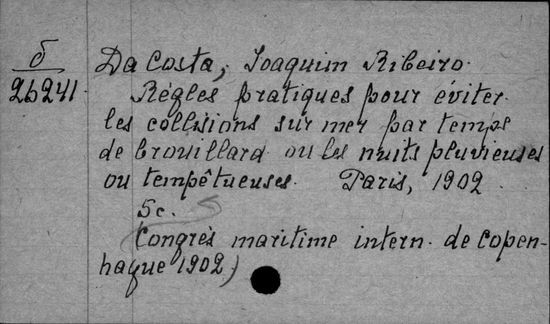 б
26241
Da Costa, Joaquim Ribeiro.
Règles pratiques pour éviter
les collisions sur mer par temps
de brouillard ou les nuits pluvieuses
ou tempêtueuses. Paris, 1902
5c.
(Congrès maritime intern. de Copen-
hague 1902)